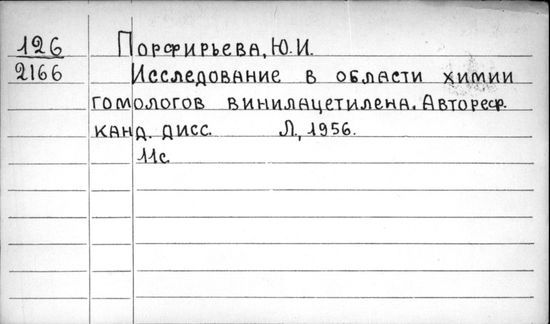 126 Порфирьева, Ю.И.
2166 Исследование в области химии
гомологов винилацетилена. Автореф.
канд. дисс. Л., 1956.
11с.